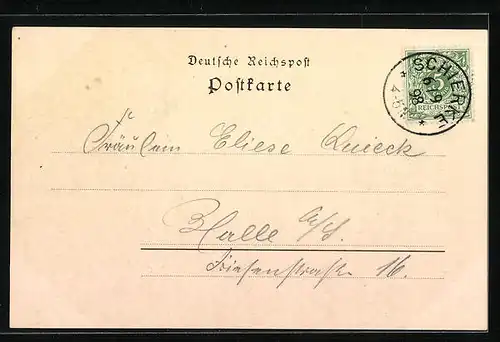 Deutsche Reichspost
Postkarte
SCHIERKE
6 9
98
4-5N
5
REICHSPOST
Fräulein Eliese Quieck
Halle a/S.
Riesenstraße 16.